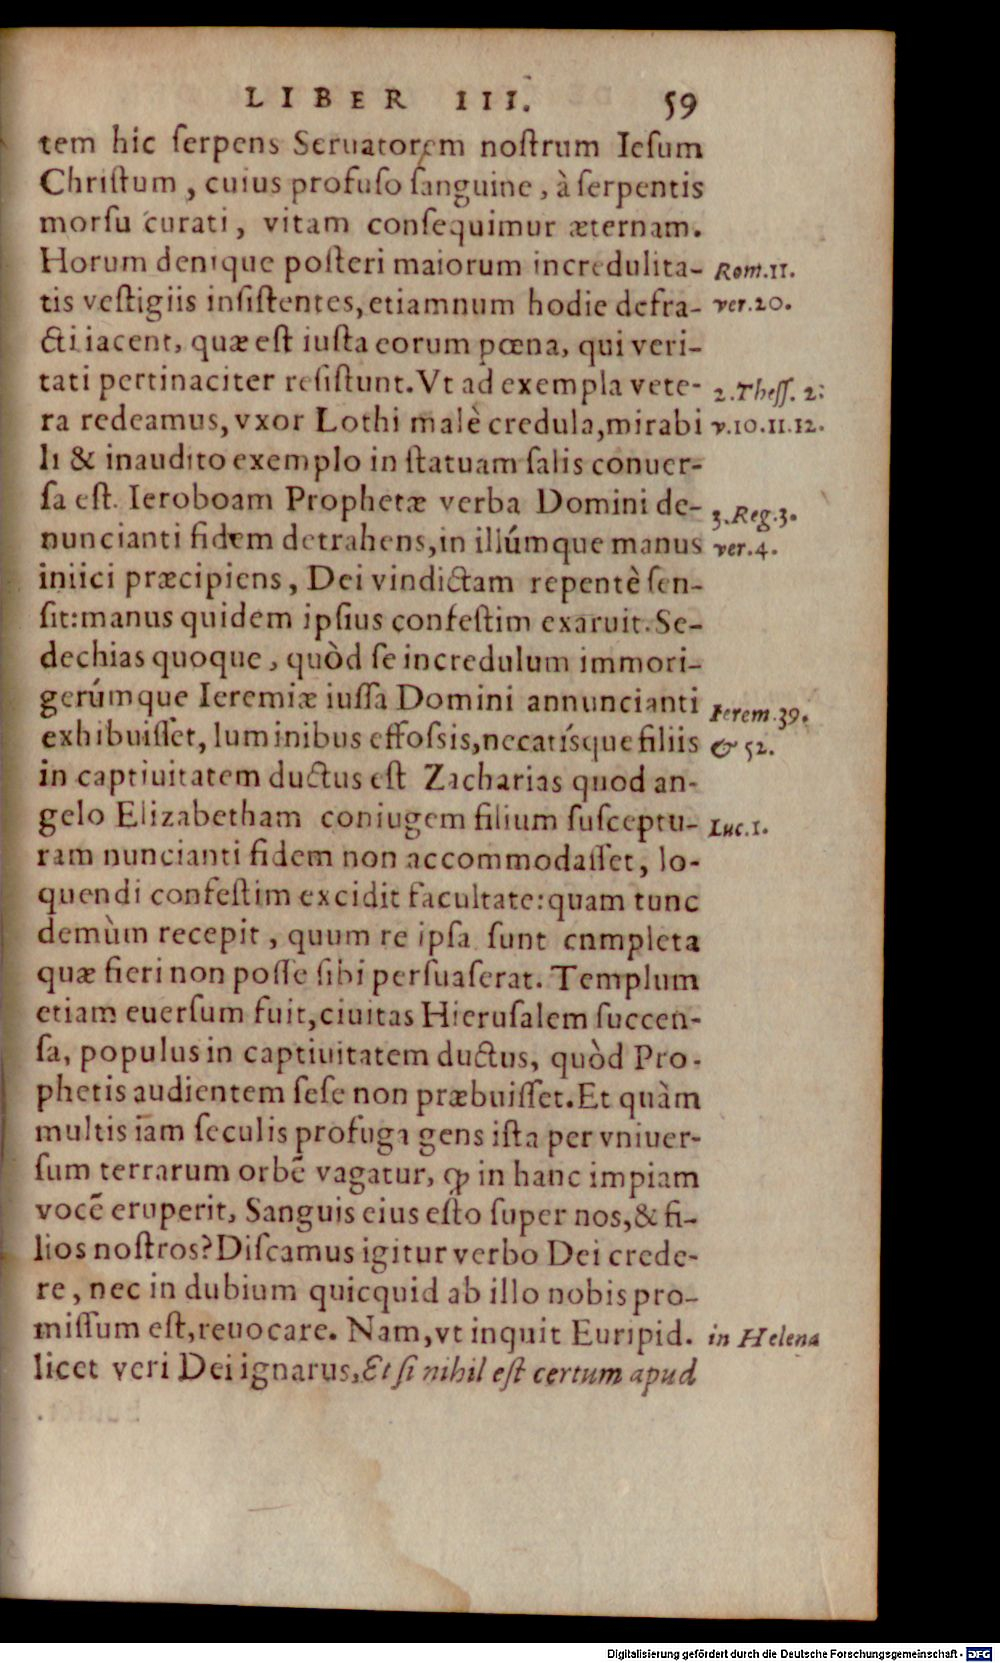 LIBER III. 59
tem hic ſerpens Seruatorem noſtrum Ieſum
Chriſtum, cuius profuſo ſanguine, à ſerpentis
morſu curati, vitam conſequimur æternam.
Horum denique poſteri maiorum incredulita- Rom.11.
tis veſtigiis inſiſtentes, etiamnum hodie defra- ver.20.
cti iacent, quæ eſt iuſta eorum pœna, qui veri-
tati pertinaciter reſiſtunt. Vt ad exempla vete- 2.Theſſ. 2:
ra redeamus, vxor Lothi malè credula, mirabi v.10.11.12.
li & inaudito exemplo in ſtatuam ſalis conuer-
ſa eſt. Ieroboam Prophetæ verba Domini de- 3.Reg.3.
nuncianti fidem detrahens, in illúmque manus ver.4.
iniici præcipiens, Dei vindictam repentè ſen-
ſit: manus quidem ipſius confeſtim exaruit. Se-
dechias quoque, quòd ſe incredulum immori-
gerúmque Ieremiæ iuſſa Domini annuncianti Ierem.39.
exhibuiſſet, luminibus effoſsis, necatíſque filiis & 52.
in captiuitatem ductus eſt Zacharias quod an-
gelo Elizabetham coniugem filium ſuſceptu- Luc.1.
ram nuncianti fidem non accommodaſſet, lo-
quendi confeſtim excidit facultate: quam tunc
demùm recepit, quum re ipſa ſunt cnmpleta
quæ fieri non poſſe ſibi perſuaſerat. Templum
etiam euerſum fuit, ciuitas Hieruſalem ſuccen-
ſa, populus in captiuitatem ductus, quòd Pro-
phetis audientem ſeſe non præbuiſſet. Et quàm
multis iam ſeculis profuga gens iſta per vniuer-
ſum terrarum orbē vagatur, ꝙ in hanc impiam
vocē eruperit, Sanguis eius eſto ſuper nos, & fi-
lios noſtros? Diſcamus igitur verbo Dei crede-
re, nec in dubium quicquid ab illo nobis pro-
miſſum eſt, reuocare. Nam, vt inquit Euripid. in Helena
licet veri Dei ignarus, Et ſi nihil eſt certum apud
Digitalisierung gefördert durch die Deutsche Forschungsgemeinschaft - DFG